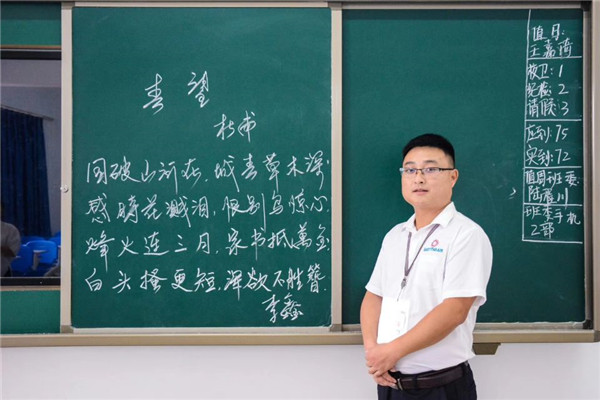 春望
杜甫
国破山河在,城春草木深.
感时花溅泪,恨别鸟惊心
烽火连三月,家书抵萬金
白头搔更短,浑欲不胜簪
李鑫
值日:
校卫:1
纪检:2
请假:3
应到:75
实到:72
值周班委
班委手机
2部